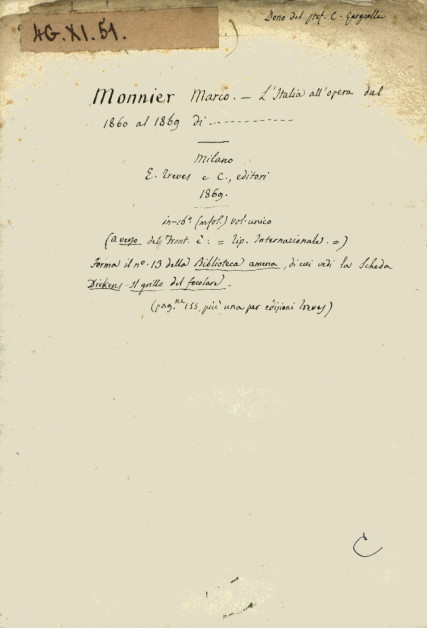 4G.XI.51.
Dono del prof. C.
Monnier Marco. — L'Italia all'opera dal
1860 al 1869 di - - - - - - - - - - -
Milano
E. Treves e C., editori
1869.
in-16° (m/fol.) vol. unico
(a verso del front. è: = Tip. Internazionale. =)
Forma il n°. 13 della Biblioteca amena, di cui vedi la Scheda
Dickens - Il grillo del focolare.
(pag.ne 155, più una per edizioni Treves)
C